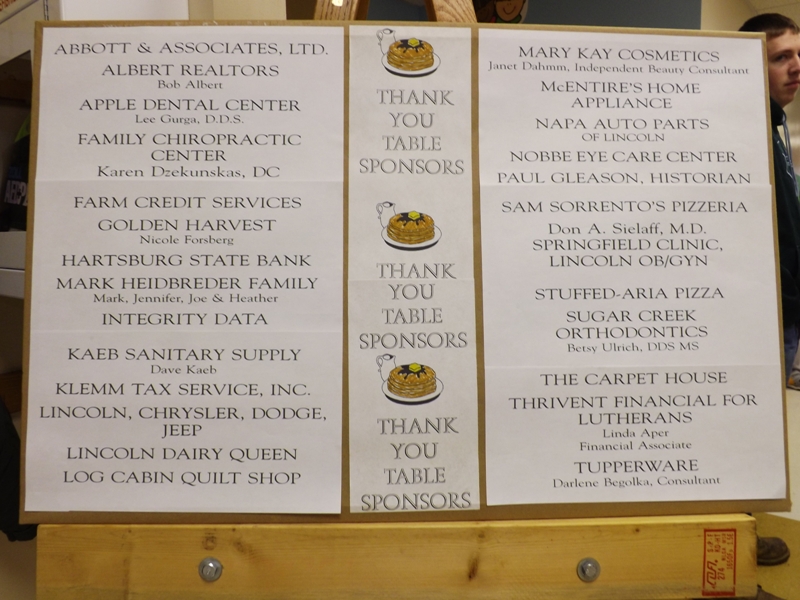 ABBOTT & ASSOCIATES, LTD.
ALBERT REALTORS
Bob Albert
APPLE DENTAL CENTER
Lee Gurga, D.D.S.
FAMILY CHIROPRACTIC
CENTER
Karen Dzekunskas, DC
FARM CREDIT SERVICES
GOLDEN HARVEST
Nicole Forsberg
HARTSBURG STATE BANK
MARK HEIDBREDER FAMILY
Mark, Jennifer, Joe & Heather
INTEGRITY DATA
KAEB SANITARY SUPPLY
Dave Kaeb
KLEMM TAX SERVICE, INC.
LINCOLN, CHRYSLER, DODGE,
JEEP
LINCOLN DAIRY QUEEN
LOG CABIN QUILT SHOP
THANK
YOU
TABLE
SPONSORS
THANK
YOU
TABLE
SPONSORS
THANK
YOU
TABLE
SPONSORS
MARY KAY COSMETICS
Janet Dahmm, Independent Beauty Consultant
McENTIRE'S HOME
APPLIANCE
NAPA AUTO PARTS
OF LINCOLN
NOBBE EYE CARE CENTER
PAUL GLEASON, HISTORIAN
SAM SORRENTO'S PIZZERIA
Don A. Sielaff, M.D.
SPRINGFIELD CLINIC,
LINCOLN OB/GYN
STUFFED-ARIA PIZZA
SUGAR CREEK
ORTHODONTICS
Betsy Ulrich, DDS MS
THE CARPET HOUSE
THRIVENT FINANCIAL FOR
LUTHERANS
Linda Aper
Financial Associate
TUPPERWARE
Darlene Begolka, Consultant